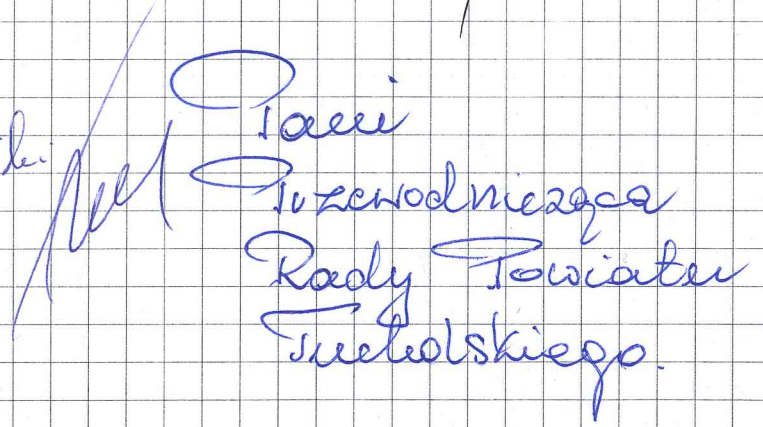 Pani
Przewodnicząca
Rady Powiatu
Tucholskiego.